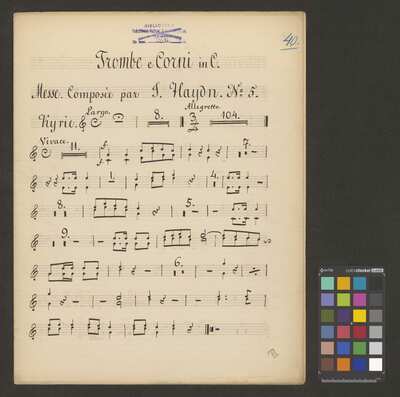 BIBLIO
40.
Trombe e Corni in C.
Messe. Composée par J. Haydn. No 5.
Largo. Allegretto
Kyrie. 8. 3 104.
Vivace. 11. 7.
1 4.
8. 5.
9.
6.